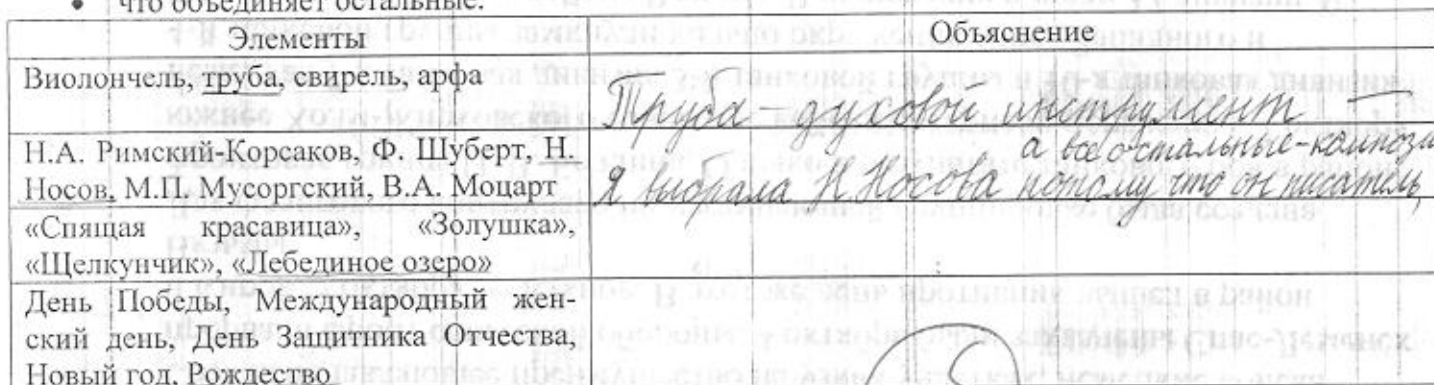 • что объединяет остальные.
Элементы
Объяснение
Виолончель, труба, свирель, арфа
Труба – духовой инструмент –
Н.А. Римский-Корсаков, Ф. Шуберт, Н.
Носов, М.П. Мусоргский, В.А. Моцарт
а все остальные-компози
Я выбрала Н Носова потому что он писатель,
«Спящая красавица», «Золушка»,
«Щелкунчик», «Лебединое озеро»
День Победы, Международный жен-
ский день, День Защитника Отчества,
Новый год, Рождество.